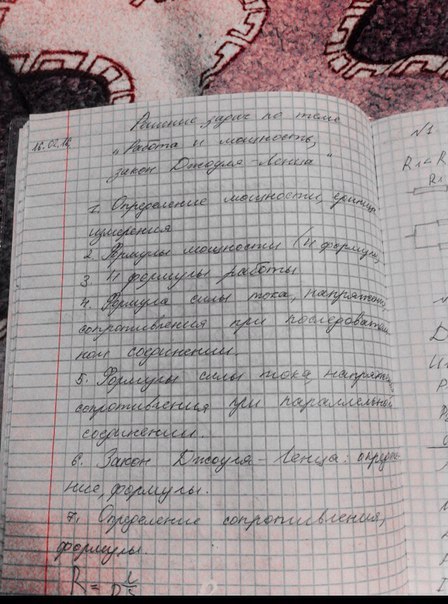 16.02.18
Решение задач по теме
„Работа и мощность,
закон Джоуля-Ленца"
1. Определение мощности, единицы
измерения
2. Формулы мощности (4 формулы)
3. 4 формулы работы
4. Формула силы тока, напряжения,
сопротивления при последователь
ном соединении.
5. Формулы силы тока, напряжения
сопротивления при параллельном
соединении.
6. Закон Джоуля-Ленца: определе-
ние, формулы.
7. Определение сопротивления,
формулы.
R =
№1
R1
R1